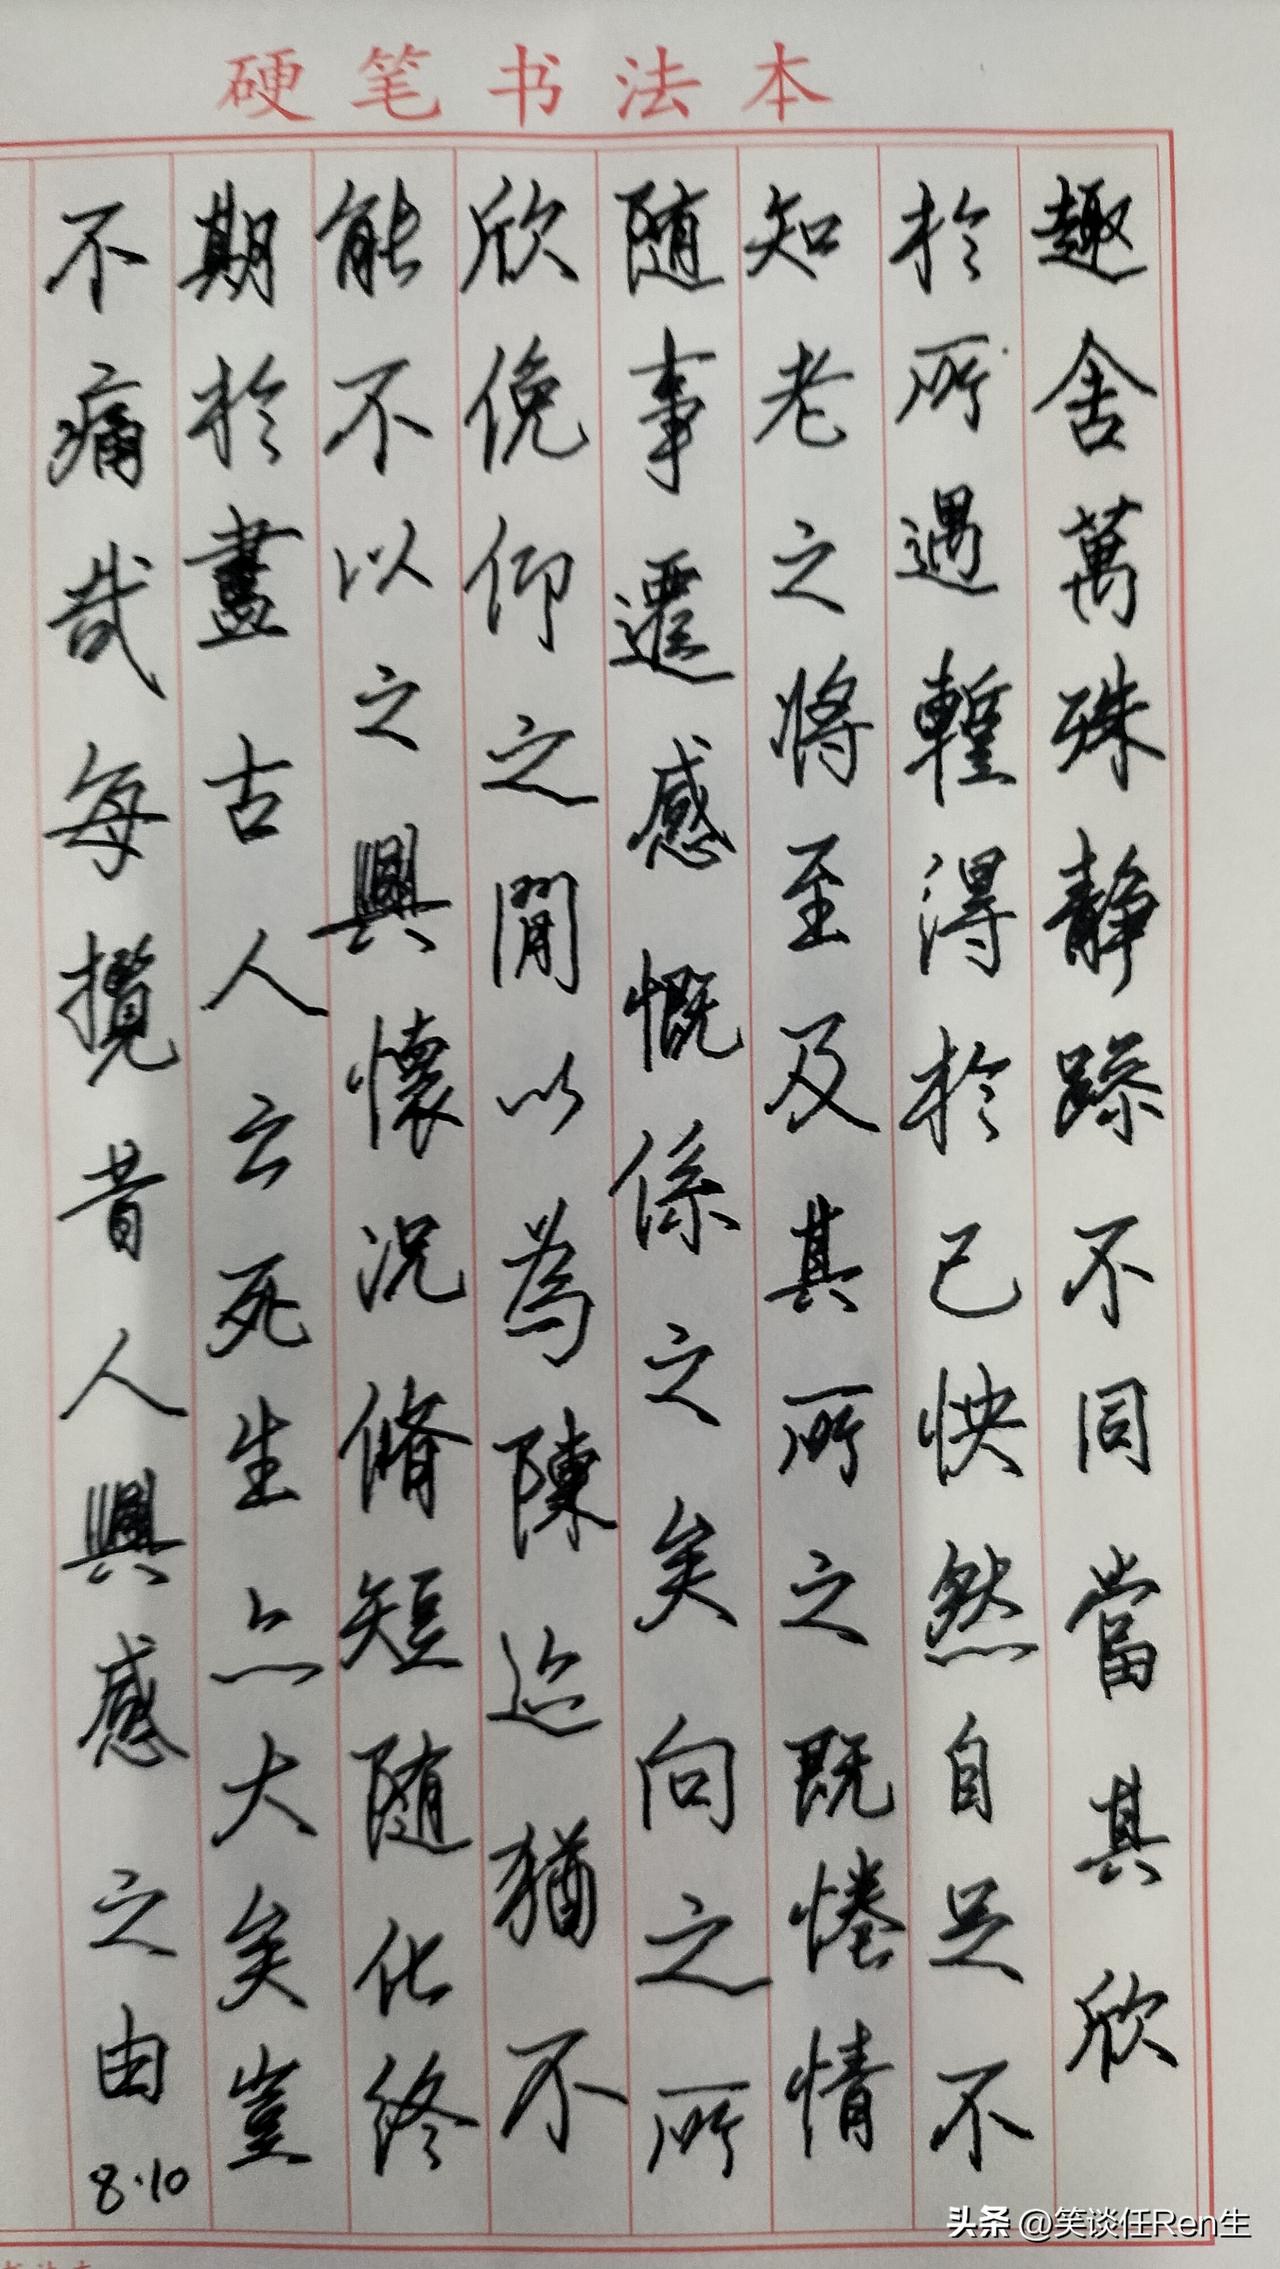 硬笔书法本
趣舍萬殊静躁不同當其欣
於所遇蹔得於己怏然自足不
知老之将至及其所之既惓情
随事遷感慨係之矣向之所
欣俛仰之閒以為陳迹猶不
能不以之興懷况脩短随化終
期於盡古人云死生亦大矣豈
不痛哉每攬昔人興感之由
8.10
头条 @笑谈任Ren生